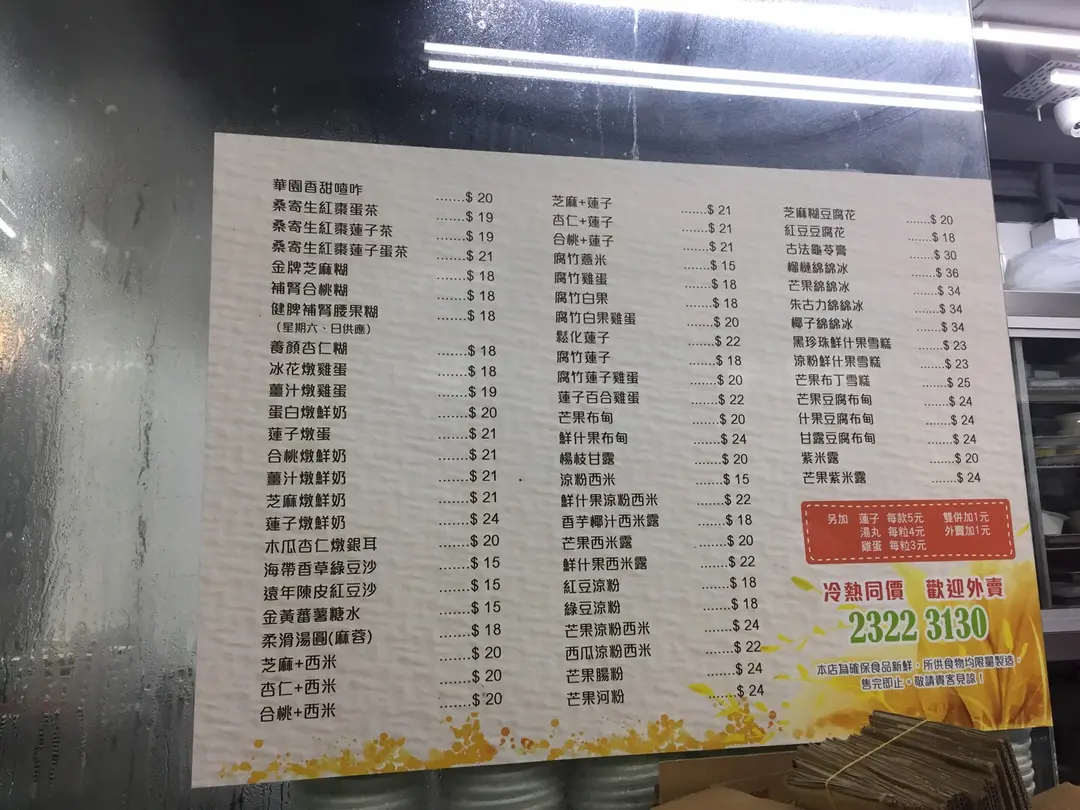 華園香甜喳咋 .......$ 20
桑寄生紅棗蛋茶 .......$ 19
桑寄生紅棗蓮子茶 .......$ 19
桑寄生紅棗蓮子蛋茶 .......$ 21
金牌芝麻糊 .......$ 18
補腎合桃糊 .......$ 18
健脾補腎腰果糊 .......$ 18
(星期六、日供應)
養顏杏仁糊 .......$ 18
冰花燉雞蛋 .......$ 18
薑汁燉雞蛋 .......$ 19
蛋白燉鮮奶 .......$ 20
蓮子燉蛋 .......$ 21
合桃燉鮮奶 .......$ 21
薑汁燉鮮奶 .......$ 21
芝麻燉鮮奶 .......$ 21
蓮子燉鮮奶 .......$ 24
木瓜杏仁燉銀耳 .......$ 20
海帶香草綠豆沙 .......$ 15
遠年陳皮紅豆沙 .......$ 15
金黃蕃薯糖水 .......$ 15
柔滑湯圓(麻蓉) .......$ 18
芝麻+西米 .......$ 20
杏仁+西米 .......$ 20
合桃+西米 .......$ 20
芝麻+蓮子 .......$ 21
杏仁+蓮子 .......$ 21
合桃+蓮子 .......$ 21
腐竹薏米 .......$ 15
腐竹雞蛋 .......$ 18
腐竹白果 .......$ 18
腐竹白果雞蛋 .......$ 20
鬆化蓮子 .......$ 22
腐竹蓮子 .......$ 18
腐竹蓮子雞蛋 .......$ 20
蓮子百合雞蛋 .......$ 22
芒果布甸 .......$ 20
鮮什果布甸 .......$ 24
楊枝甘露 .......$ 20
涼粉西米 .......$ 15
鮮什果涼粉西米 .......$ 22
香芋椰汁西米露 .......$ 18
芒果西米露 .......$ 20
鮮什果西米露 .......$ 22
紅豆涼粉 .......$ 18
綠豆涼粉 .......$ 18
芒果涼粉西米 .......$ 24
西瓜涼粉西米 .......$ 22
芒果腸粉 .......$ 24
芒果河粉 .......$ 24
芝麻糊豆腐花 .......$ 20
紅豆豆腐花 .......$ 18
古法龜苓膏 .......$ 30
榴槤綿綿冰 .......$ 36
芒果綿綿冰 .......$ 34
朱古力綿綿冰 .......$ 34
椰子綿綿冰 .......$ 34
黑珍珠鮮什果雪糕 .......$ 23
涼粉鮮什果雪糕 .......$ 23
芒果布丁雪糕 .......$ 25
芒果豆腐布甸 .......$ 24
什果豆腐布甸 .......$ 24
甘露豆腐布甸 .......$ 24
紫米露 .......$ 20
芒果紫米露 .......$ 24
另加 蓮子 每款5元 雙併加1元
湯丸 每粒4元 外賣加1元
雞蛋 每粒3元
冷熱同價 歡迎外賣
2322 3130
本店為確保食品新鮮，所供食物均限量製造，
售完即止。敬請貴客見諒！